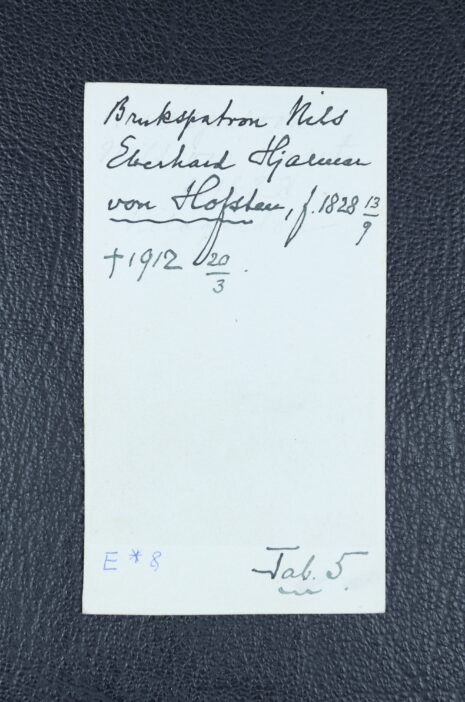 Brukspatron Nils
Eberhard Hjalmar
von Hofsten, f. 1828 13/9
† 1912 20/3.
E * 8
Tab. 5.